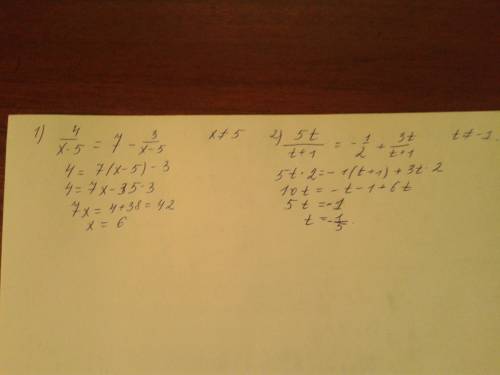 1) 4/(x-5) = 7 - 3/(x-5)   x≠5
4 = 7(x-5) - 3
4 = 7x - 35 - 3
7x = 4+38 = 42
x = 6
2) 5t/(t+1) = -1/2 + 3t/(t+1)   t≠-1
5t·2 = -1(t+1) + 3t·2
10t = -t-1+6t
5t = -1
t = -1/5.